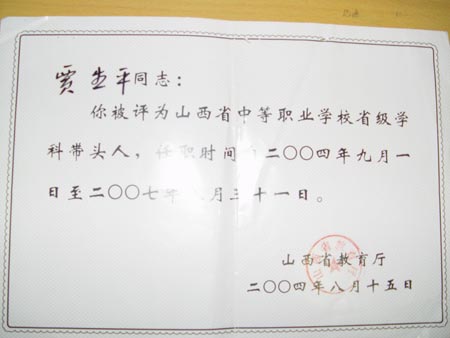 贾生平同志：
你被评为山西省中等职业学校省级学
科带头人，任职时间 二〇〇四年九月一
日至二〇〇七年八月三十一日。
山西省教育厅
二〇〇四年八月十五日